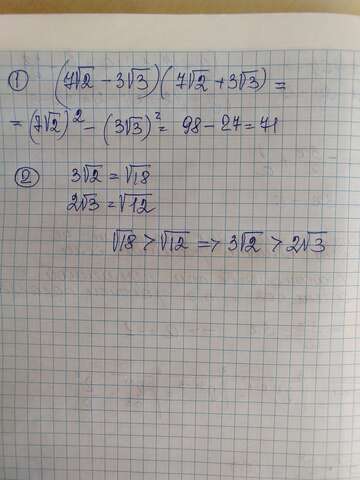 ① (7√2 − 3√3)(7√2 + 3√3) =
= (7√2)² − (3√3)² = 98 − 27 = 71
② 3√2 = √18
2√3 = √12
√18 > √12 => 3√2 > 2√3